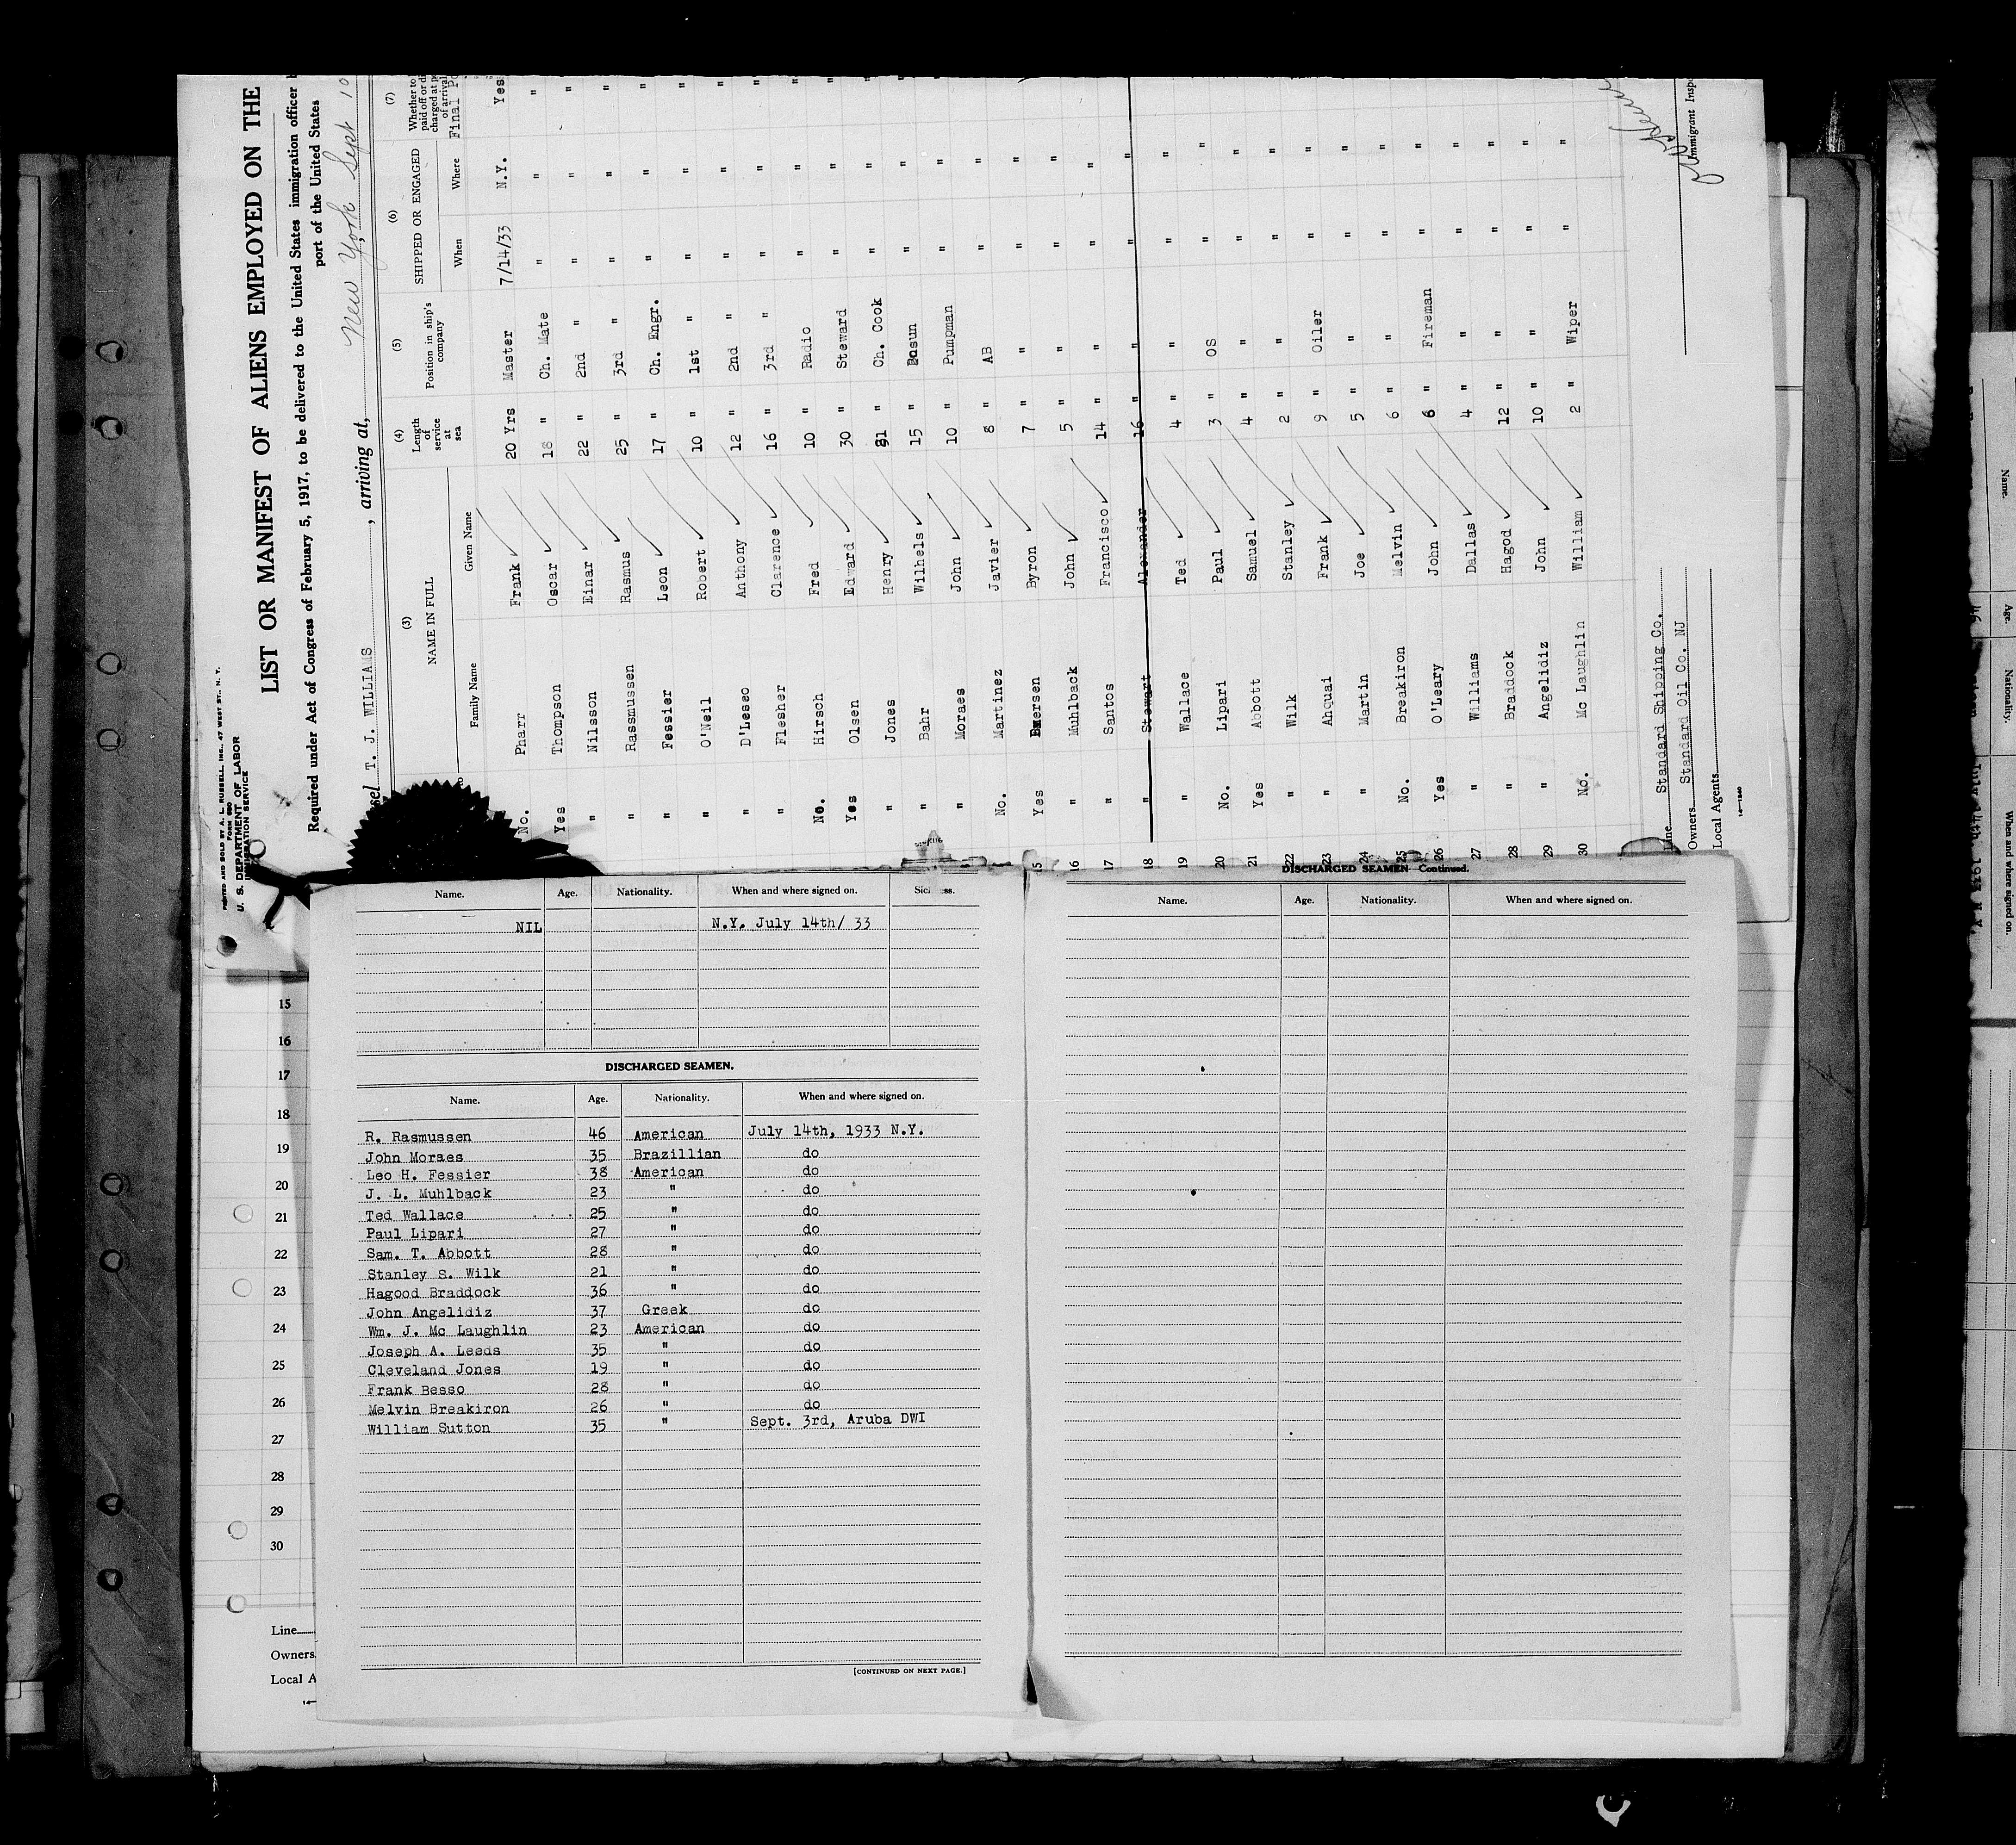 PRINTED AND SOLD BY A. L. RUSSELL, INC., 47 WEST ST., N. Y.
FORM 680
U. S. DEPARTMENT OF LABOR
IMMIGRATION SERVICE
LIST OR MANIFEST OF ALIENS EMPLOYED ON THE
Required under Act of Congress of February 5, 1917, to be delivered to the United States immigration officer
port of the United States
sel T. J. WILLIAMS , arriving at, New York Sept 10
(3) (4) (5) (6) (7)
NAME IN FULL Length of service at sea Position in ship's company SHIPPED OR ENGAGED Whether to paid off or di charged at p of arrival
Family Name Given Name When Where Final Po
No. Pharr Frank 20 Yrs Master 7/14/33 N.Y. Yes
Yes Thompson Oscar 18 " Ch. Mate " " "
" Nilsson Einar 22 " 2nd " " " "
" Rasmussen Rasmus 25 " 3rd " " " "
" Fessier Leon 17 " Ch. Engr. " " "
" O'Neil Robert 10 " 1st " " " "
" D'Leseo Anthony 12 " 2nd " " " "
" Flesher Clarence 16 " 3rd " " " "
No. Hirsch Fred 10 " Radio " " "
Yes Olsen Edward 30 " Steward " " "
" Jones Henry 31 " Ch. Cook " " "
" Bahr Wilhels 15 " Bosun " " "
" Moraes John 10 " Pumpman " " "
No. Martinez Javier 8 " AB " " "
15 Yes Emersen Byron 7 " " " " "
16 " Muhlback John 5 " " " " "
17 " Santos Francisco 14 " " " " "
18 " Stewart Alexander 16 " " " " "
19 " Wallace Ted 4 " " " " "
20 No. Lipari Paul 3 " OS " " "
21 Yes Abbott Samuel 4 " " " " "
22 " Wilk Stanley 2 " " " " "
23 " Ahquai Frank 9 " Oiler " " "
24 " Martin Joe 5 " " " " "
25 No. Breakiron Melvin 6 " " " " "
26 Yes O'Leary John 6 " Fireman " " "
27 " Williams Dallas 4 " " " " "
28 " Braddock Hagod 12 " " " " "
29 " Angelidiz John 10 " " " " "
30 No. Mc Laughlin William 2 " Wiper " " "
Line Standard Shipping Co.
Owners Standard Oil Co. NJ
Local Agents
Immigrant Insp
Name. Age. Nationality. When and where signed on.
Name. Age. Nationality. When and where signed on.
NIL N.Y. July 14th/ 33
DISCHARGED SEAMEN.
Name. Age. Nationality. When and where signed on.
R. Rasmussen 46 American July 14th, 1933 N.Y.
John Moraes 35 Brazillian do
Leo H. Fessier 38 American do
J. L. Muhlback 23 " do
Ted Wallace 25 " do
Paul Lipari 27 " do
Sam. T. Abbott 28 " do
Stanley S. Wilk 21 " do
Hagood Braddock 36 " do
John Angelidiz 37 Greek do
Wm. J. Mc Laughlin 23 American do
Joseph A. Leeds 35 " do
Cleveland Jones 19 " do
Frank Besso 28 " do
Melvin Breakiron 26 " do
William Sutton 35 " Sept. 3rd, Aruba DWI
[CONTINUED ON NEXT PAGE.]
DISCHARGED SEAMEN Continued.
Name. Age. Nationality. When and where signed on.
15
16
17
18
19
20
21
22
23
24
25
26
27
28
29
30
Line
Owners
Local A